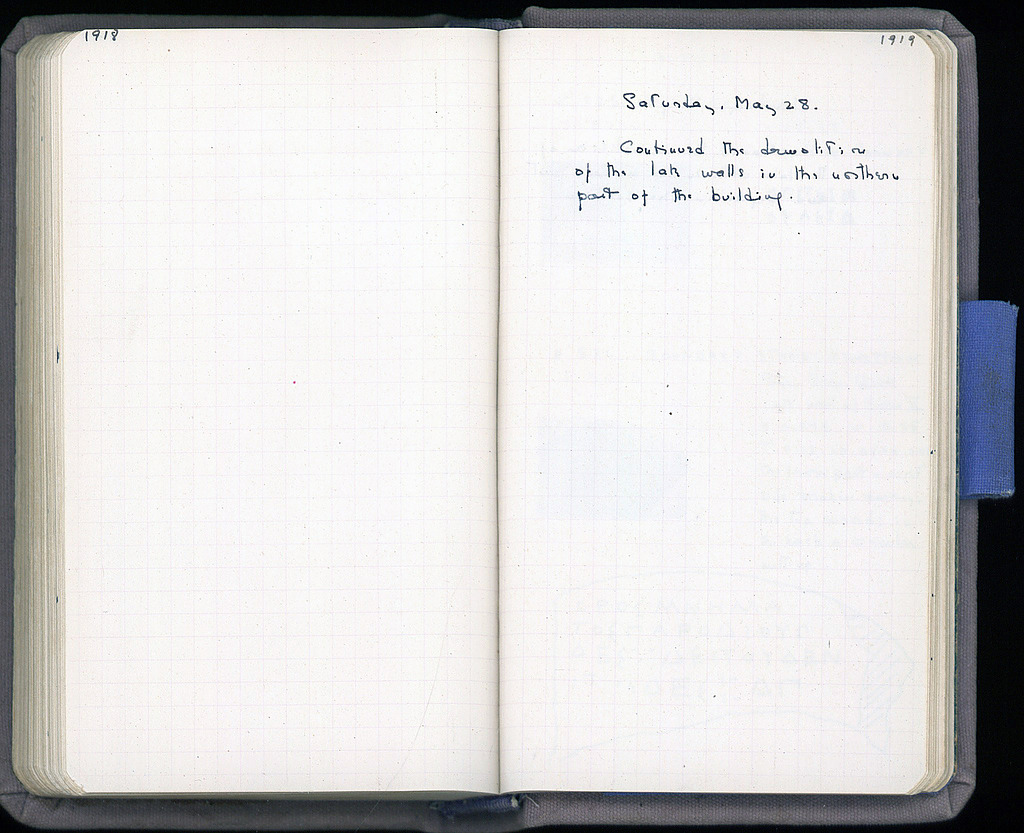 1918
1919
Saturday, May 28.
Continued the demolition
of the late walls in the northern
part of the building.